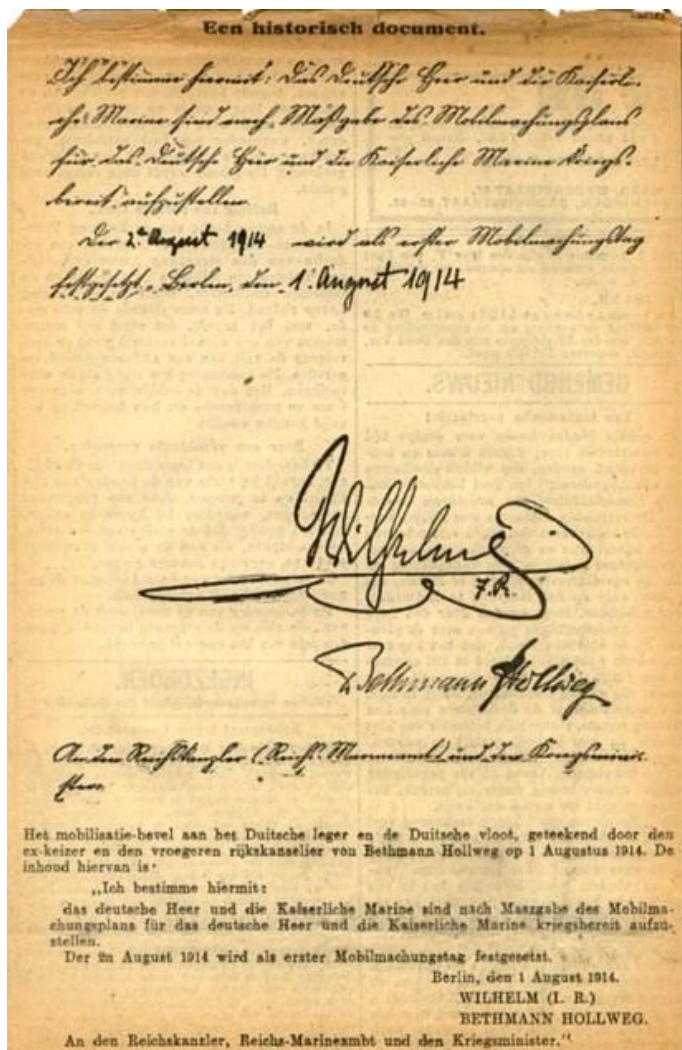 Een historisch document.
Ich bestimme hiermit: Das Deutsche Heer und die Kaiserli-
che Marine sind nach Maßgabe des Mobilmachungsplans
für das Deutsche Heer und die Kaiserliche Marine kriegs-
bereit aufzustellen.
Der 2te August 1914 wird als erster Mobilmachungstag
festgesetzt. Berlin, den 1. August 1914
Wilhelm
J.R.
Bethmann Hollweg
An den Reichskanzler (Reichs-Marineamt) und den Kriegsmini-
ster.
Het mobilisatie-bevel aan het Duitsche leger en de Duitsche vloot, geteekend door den
ex-keizer en den vroegeren rijkskanselier von Bethmann Hollweg op 1 Augustus 1914. De
inhoud hiervan is:
„Ich bestimme hiermit:
das deutsche Heer und die Kaiserliche Marine sind nach Maszgabe des Mobilma-
chungsplans für das deutsche Heer und die Kaiserliche Marine kriegsbereit aufzu-
stellen.
Der 2n August 1914 wird als erster Mobilmachungstag festgesetzt.
Berlin, den 1 August 1914.
WILHELM (I. R.)
BETHMANN HOLLWEG.
An den Reichskanzler, Reichs-Marineambt und den Kriegsminister."